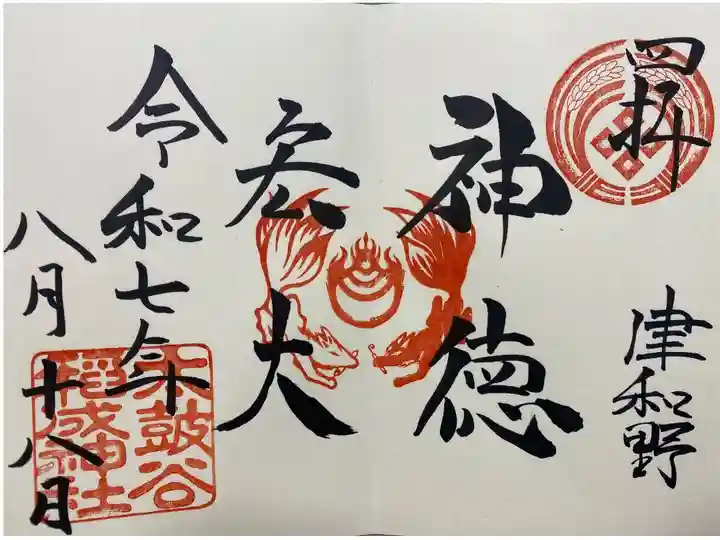 四拝
津和野
神徳
宏大
令和七年
八月十八日
太皷谷
稲成神社